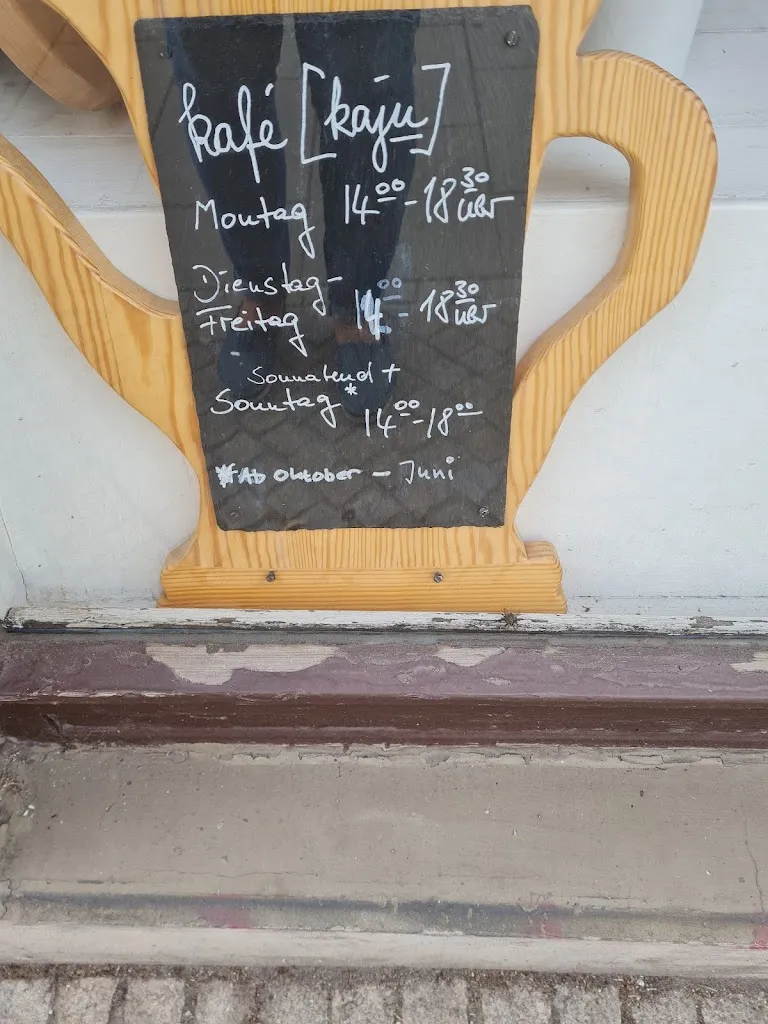 kafé [kaju]
Montag 14⁰⁰-18³⁰ uhr
Dienstag-
Freitag 14⁰⁰- 18³⁰ uhr
Sonnabend +
Sonntag* 14⁰⁰-18⁰⁰
*Ab Oktober - Juni